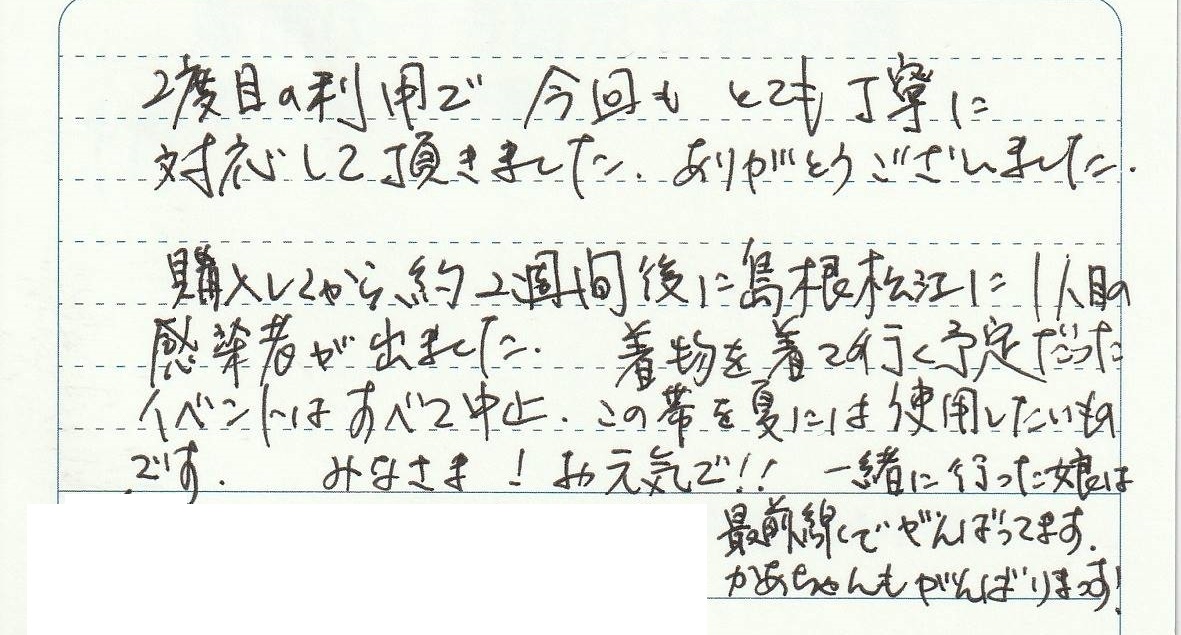 2度目の利用で 今回も とても丁寧に
対応して頂きました。ありがとうございました。
購入してから約2週間後に島根松江に1人目の
感染者が出ました。 着物を着ての行く予定だった
イベントはすべて中止。この帯を夏には使用したいもの
です。 みなさま！お元気で!! 一緒に行った娘は
最前線でがんばってます。
かあちゃんもがんばりまっす!